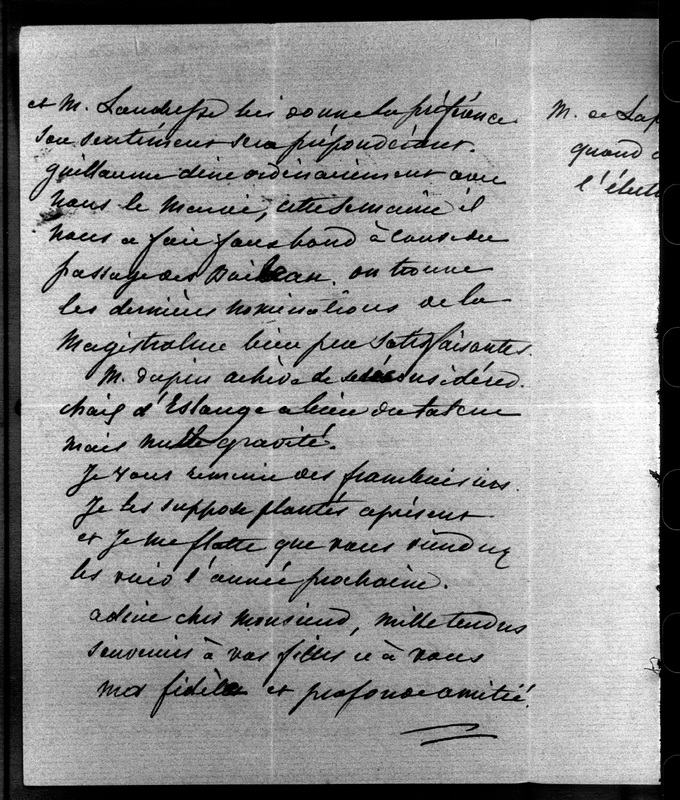 et M. Landresse lui donne la préférence
son sentiment sera prépondérant.
Guillaume dine ordinairement avec
nous le Mercredi, cette semaine il
nous a fait faux bond à cause du
passage des on trouve
les dernières nominations de la
Magistrature bien peu satisfaisantes.
M. Dupin achève de se déconsidérer.
chaix d'Estange a bien du talent
mais nulle gravité.
Je vous remercie des framboisiers.
Je les suppose plantés aprésent
et Je me flatte que vous viendrez
les voir l'année prochaine.
adieu cher Monsieur, mille tendres
souvenirs à vos filles et à vous
ma fidèle et profonde amitié.
M. de Lap
quand
l'élect